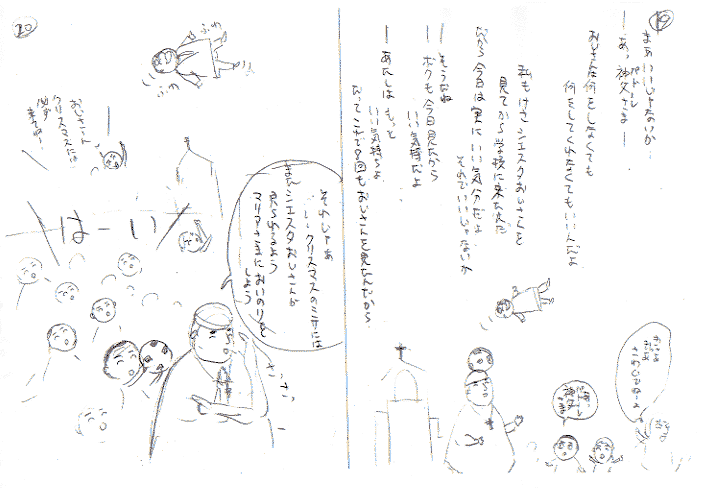 19
まあいいじゃないか…
―あっ神父さま―
パードレ
おじさんは何をしなくても
何をしてくれなくてもいいんだよ
私もけさシエスタおじさんを
見てから学校に来たんだ
だから今日は実にいい気分だよ
それでいいじゃないか
―そうだね
―ボクも今日見たから
いい気持だよ
―あたしはもっと
いい気持ちよ
だってここで2回もおじさんを見たんだから
あー
パードレ
神父さま
20
ふわ
ふわ
それじゃあ
クリスマスのミサには
またシエスタおじさんが
見られるよう
マリアさまにおいのりを
しよう
はーい
おじさーん
クリスマスには
必ず
来てねー